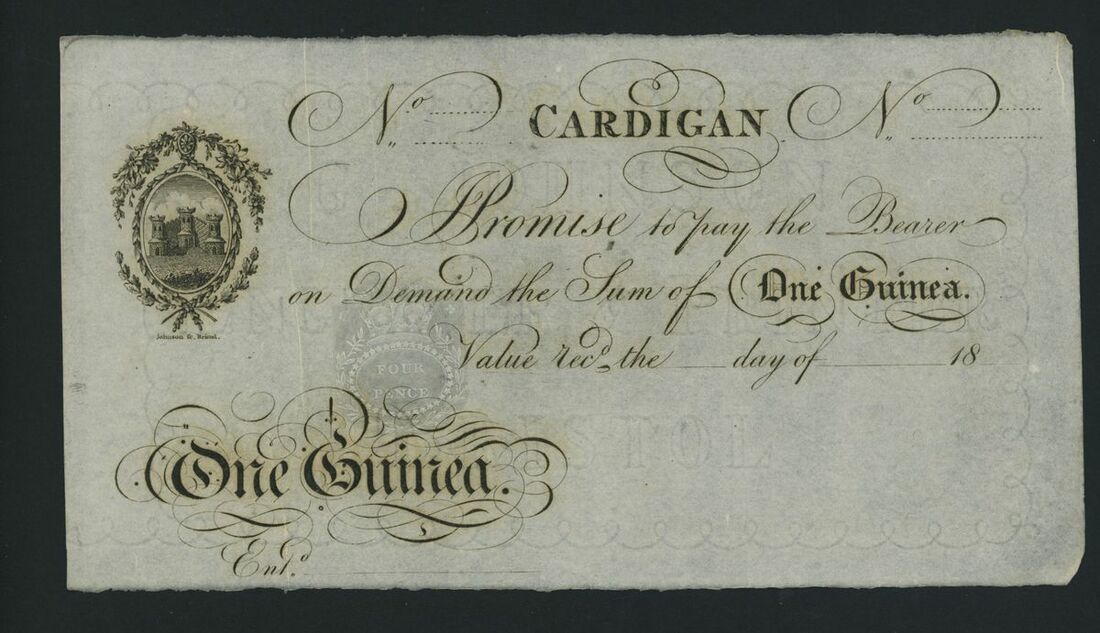 No CARDIGAN No
I Promise to pay the Bearer
on Demand the Sum of One Guinea.
Value recd. the day of 18
Johnson Sc. Bristol.
FOUR
PENCE
One Guinea.
Entd.